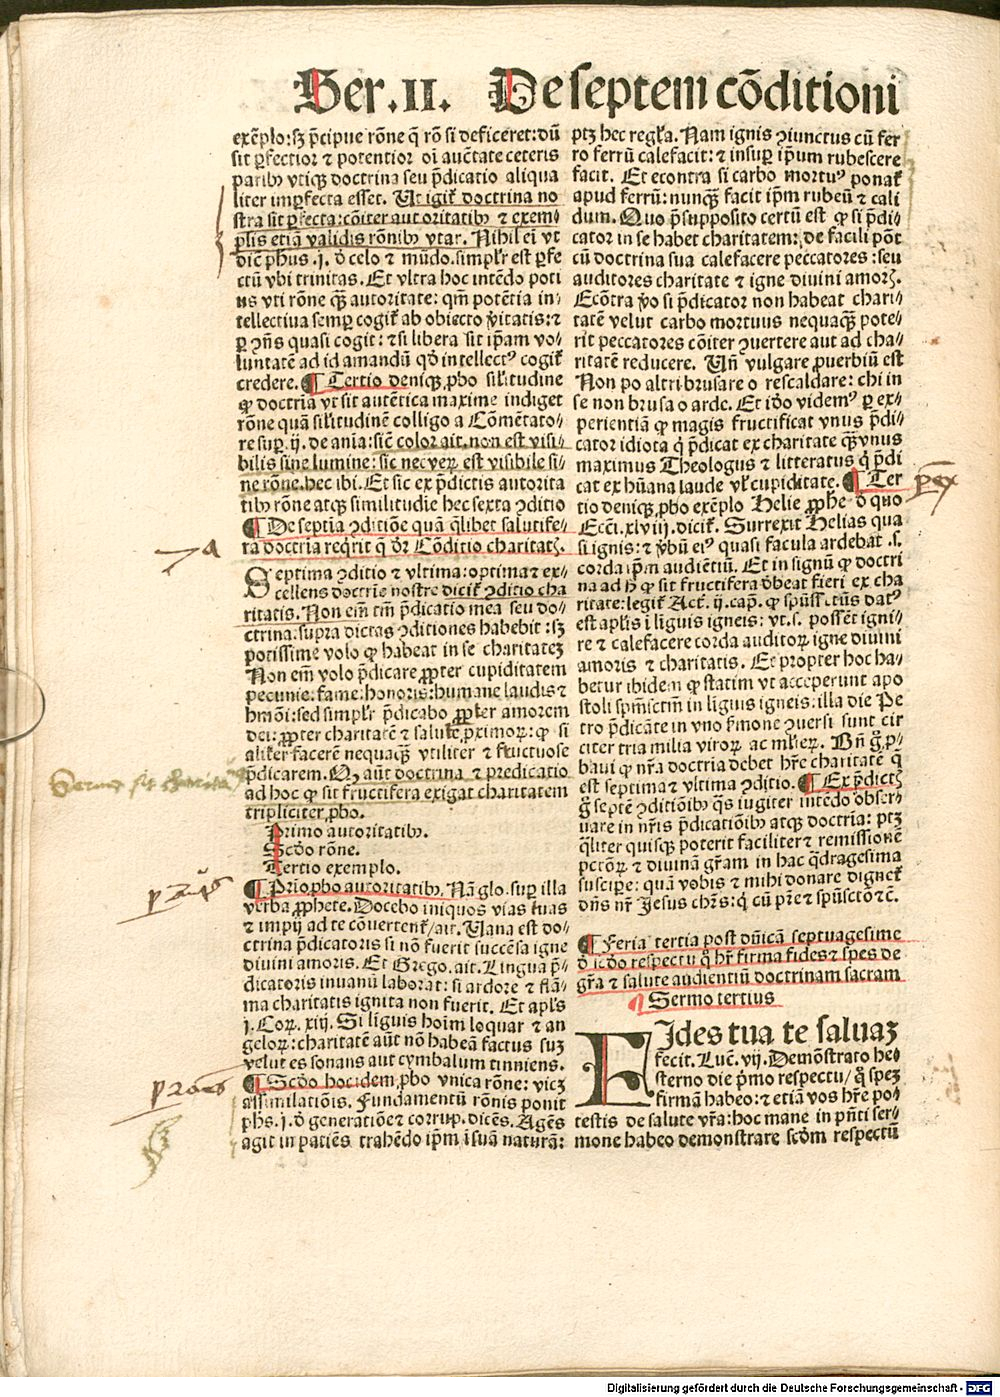 Ser.II. De septem cõditioni
exẽplo: sꝫ p̃cipue rõne q̃ rõ si deficeret: dũ
sit ꝑfectior ⁊ potentior oĩ auctate ceteris
paribꝰ vtiqꝫ doctrina seu p̃dicatio aliqua
liter imꝑfecta esset. Ut igit̃ doctrina no
stra sit ꝑfecta: cõiter autoritatibꝰ ⁊ exem⸗
plis etiã validis rõnibꝰ vtar. Nihil eĩ vt
dic̃ phus .j. d̃ celo ⁊ mũdo. simplr̃ est ꝑfe
ctũ vbi trinitas. Et vltra hoc intẽdo poti
us vti rõne qꝫ autoritate: qm̃ potẽtia in⸗
tellectiua semꝑ cogit̃ ab obiecto ṽitatis: ⁊
ꝑ ꝯñs quasi cogit: ⁊ si libera sit ip̃am vo⸗
luntatẽ ad id amandũ qd̃ intellectꝰ cogit̃
credere. ¶ Tertio deniqꝫ ꝓbo sil̃itudine
ꝙ doctrĩa vt sit autẽtica maxime indiget
rõne quã sil̃itudinẽ colligo a Cõmẽtato⸗
re suꝑ .ij. de anĩa: sic̃ color ait. non est visi⸗
bilis sine lumine: sic nec veꝝ est visibile si⸗
ne rõne. hec ibi. Et sic ex p̃dictis autorita
tibꝰ rõne atqꝫ similitudĩe hec sexta ꝯditio
¶ De septĩa ꝯditiõe quã q̃libet salutife⸗
ra doctrĩa req̃rit q̃ dr̃ Cõditio charitatꝭ.
Septima ꝯditio ⁊ vltima: optima ⁊ ex⸗
cellens doctrĩe nostre dicit̃ ꝯditio cha
ritatis. Non em̃ tm̃ p̃dicatio mea seu do⸗
ctrina: supra dictas ꝯditiones habebit: sꝫ
potissime volo ꝙ habeat in se charitatẽ
Non em̃ volo p̃dicare ꝓpter cupiditatem
pecunie: fame: honoris: humane laudis ⁊
hmõi: sed simplr̃ p̃dicabo ꝓpter amorem
dei: ꝓpter charitatẽ ⁊ salutẽ ꝓximoꝝ: ꝙ si
alit̃ facerẽ nequaqꝫ vtiliter ⁊ fructuose
p̃dicarem. Qꝙ aũt doctrina ⁊ predicatio
ad hoc ꝙ sit fructifera exigat charitatem
tripliciter ꝓbo.
Primo autoritatibꝰ.
Scd̃o rõne.
Tertio exemplo.
¶ Prĩo ꝓbo autoritatibꝰ. Nã glo. suꝑ illa
verba ꝓphete. Docebo iniquos vias tuas
⁊ impij ad te cõuertent̃ / ait. Uana est do⸗
ctrina p̃dicatoris si nõ fuerit succẽsa igne
diuini amoris. Et Grego. ait. Lingua p̃⸗
dicatoris inuanũ laborat: si ardore ⁊ flã⸗
ma charitatis ignita non fuerit. Et apl̃s
j. Coꝝ. xiij. Si lĩguis hoĩm loquar ⁊ an
geloꝝ: charitatẽ aũt nõ habeã factus suꝫ
velut es sonans aut cymbalum tinniens.
¶ Scd̃o hoc idem ꝓbo vnica rõne: vicꝫ
assimilatiõis. Fundamentũ rõnis ponit
phs .j. d̃ generatiõe ⁊ corrup. dicẽs. Agẽs
agit in patiẽs trahẽdo ip̃m ĩ suã naturã:
ptꝫ hec regl̃a. Nam ignis ꝯiunctus cũ fer
ro ferrũ calefacit: ⁊ insuꝑ ip̃um rubescere
facit. Et econtra si carbo mortuꝰ ponat̃
apud ferrũ: nunqꝫ facit ip̃m rubeũ ⁊ cali
dum. Quo p̃supposito certũ est ꝙ si p̃di⸗
cator in se habet charitatem: de facili põt
cũ doctrina sua calefacere peccatores: seu
auditores charitate ⁊ igne diuini amorꝭ.
Ecõtra v̊o si p̃dicator non habeat chari⸗
tatẽ velut carbo mortuus nequaqꝫ pote⸗
rit peccatores cõiter ꝯuertere aut ad cha⸗
ritatẽ reducere. Uñ vulgare ꝓuerbiũ est
Non po altri brusare o rescaldare: chi in
se non brusa o arde. Et id̃o videmꝰ ꝑ ex⸗
perientiã ꝙ magis fructificat vnus p̃di⸗
cator idiota q̃ p̃dicat ex charitate qꝫ vnus
maximus Theologus ⁊ litteratus q̃ p̃di
cat ex hũana laude vl̃ cupiditate. ¶ Ter
tio deniqꝫ ꝓbo exẽplo Helie ꝓphe d̃ quo
Ecc̃i. xlviij. dicit̃. Surrexit Helias qua
si ignis: ⁊ v̊bũ eiꝰ quasi facula ardebat .s.
corda ip̃m audientiũ. Et in signũ ꝙ doctri
na ad h̊ ꝙ sit fructifera d̃beat fieri ex cha
ritate: legit̃ Act̃. ij. cap̃. ꝙ sp̃ũssctũs datꝰ
est apl̃is ĩ lĩguis igneis: vt .s. possẽt igni⸗
re ⁊ calefacere corda auditoꝝ igne diuini
amoris ⁊ charitatis. Et propter hoc ha⸗
betur ibidem ꝙ statim vt acceperunt apo
stoli sp̃mscm̃ in lĩguis igneis: illa die Pe
tro p̃dicãte in vno s̃mone ꝯuersi sunt cir
citer tria milia viroꝝ ac mĩieꝝ. Bñ g̊ ꝓ⸗
baui ꝙ nr̃a doctrĩa debet hr̃e charitatẽ q̃
est septima ⁊ vltima ꝯditio. ¶ Ex p̃dictꝭ
g̊ septẽ ꝯditiõibꝰ q̃s iugiter intẽdo obser⸗
uare in nr̃is p̃dicatiõibꝰ atqꝫ doctrĩa: ptꝫ
q̃liter quisqꝫ poterit faciliter ⁊ remissionẽ
pctõꝝ ⁊ diuinã gr̃am in hac q̃dragesima
suscipe: quã vobis ⁊ mihi donare dignet̃
dñs nr̃ Jesus chrs̃: q̃ cũ pr̃e ⁊ sp̃ũscto ⁊c̃.
¶ Feria tertia post dñicã septuagesime
d̃ scd̃o respectu q̊ hr̃ firma fides ⁊ spes de
gr̃a ⁊ salute audientiũ doctrinam sacram
¶ Sermo tertius
FIdes tua te saluaꝫ
fecit. Luc̃. vij. Demõstrato he⸗
sterno die p̃mo respectu / q̊ spez
firmã habeo: ⁊ etiã vos hr̃e po⸗
testis de salute vr̃a: hoc mane in p̃ñti ser⸗
mone habeo demonstrare scd̃m respectũ
Digitalisierung gefördert durch die Deutsche Forschungsgemeinschaft - DFG